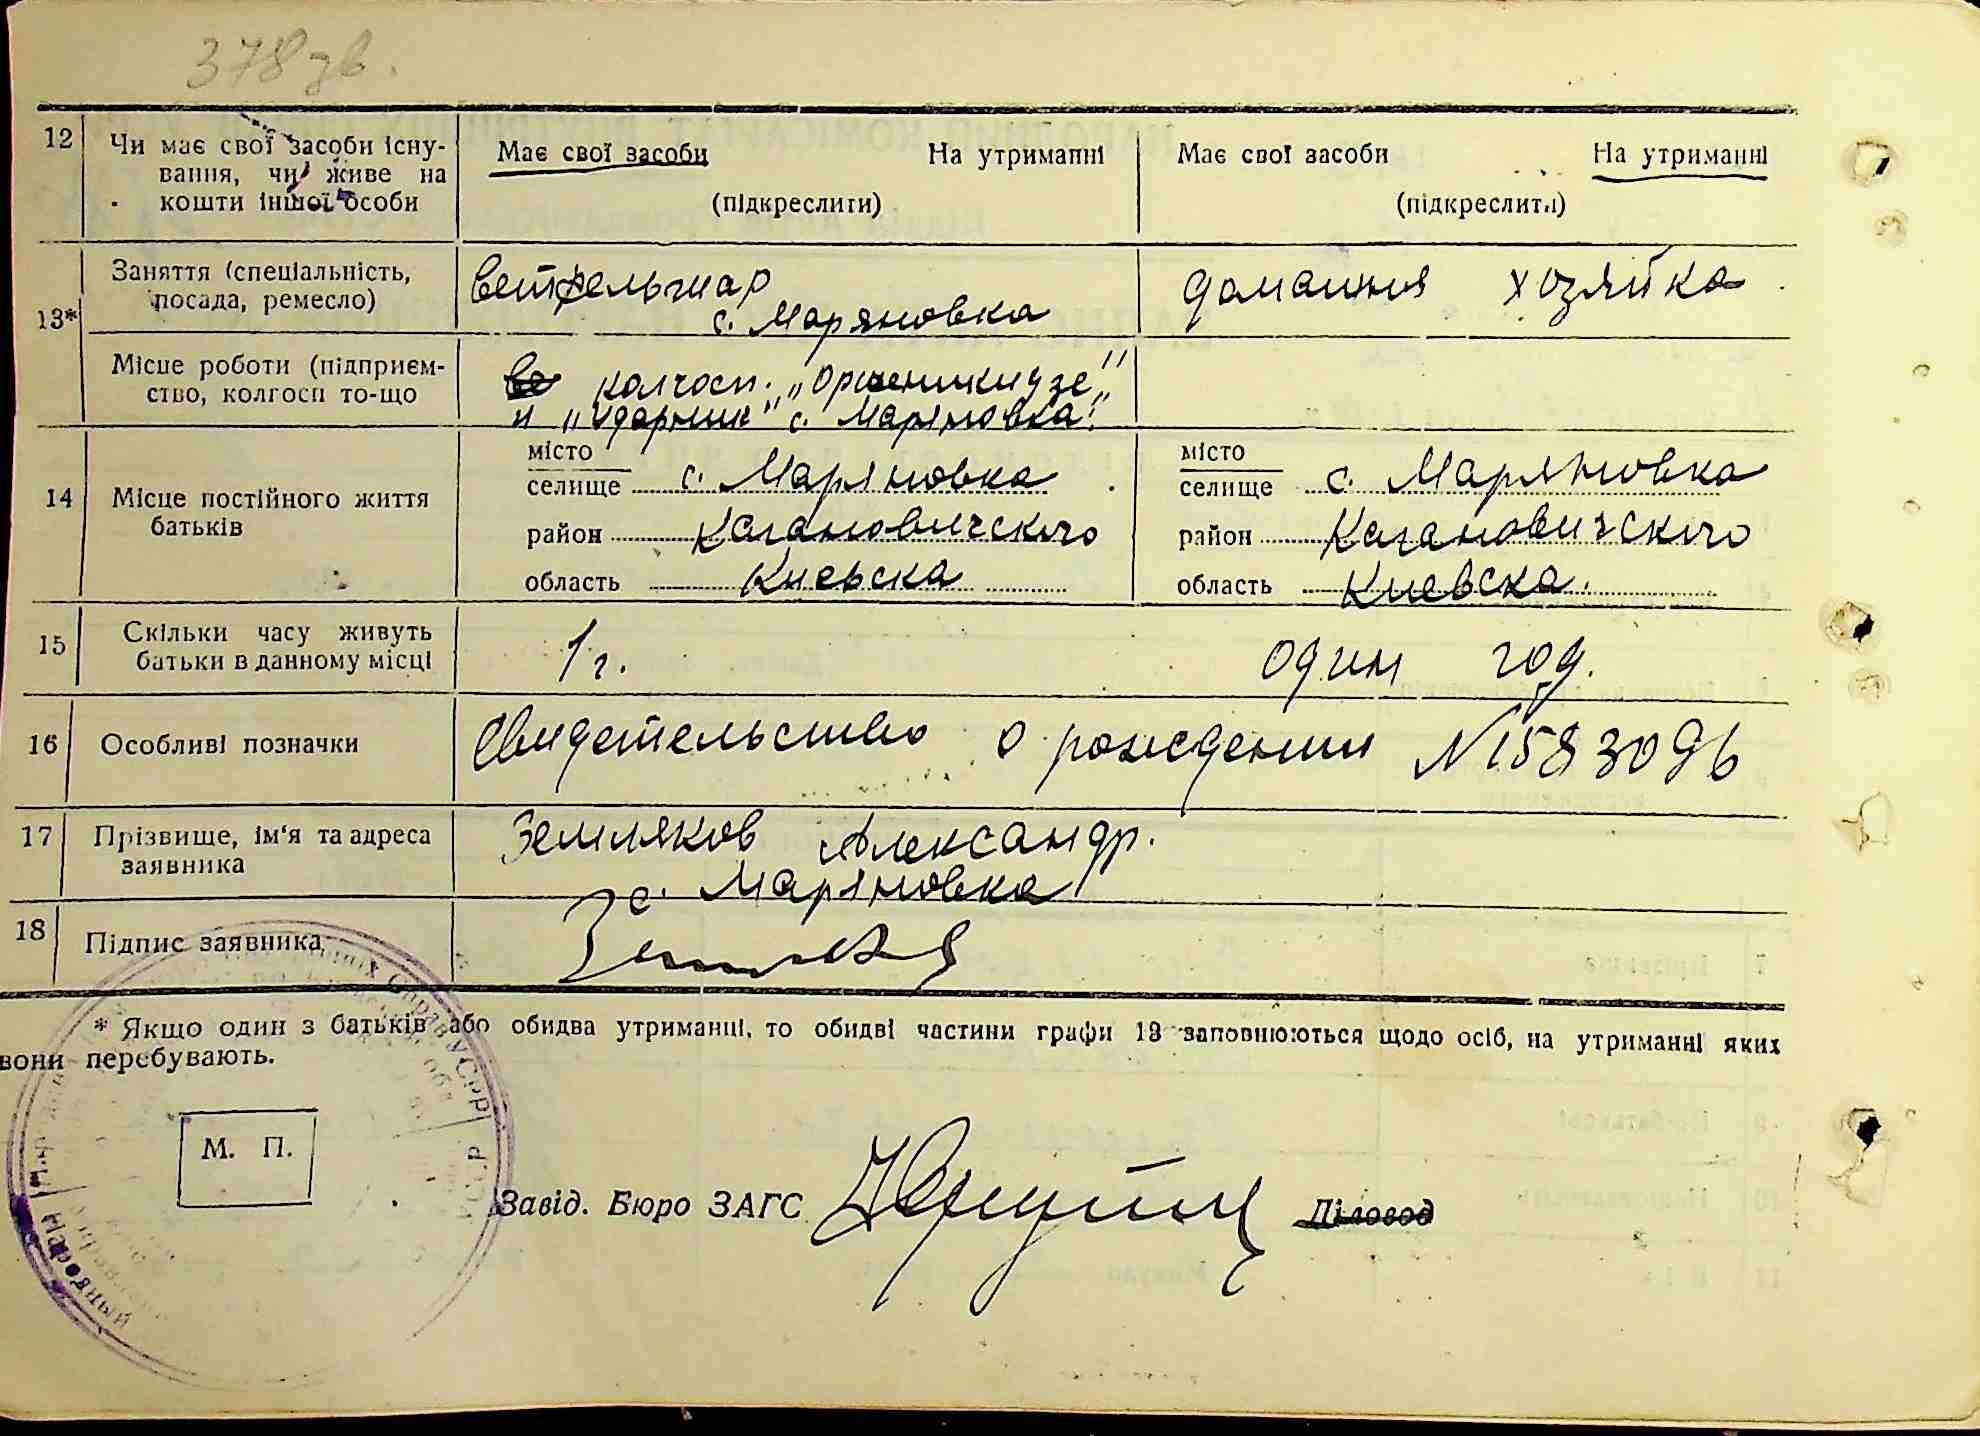 378 зв.
12
Чи має свої засоби існу-
вання, чи живе на
кошти іншої особи
Має свої засоби На утриманні
(підкреслити)
Має свої засоби На утриманні
(підкреслити)
13*
Заняття (спеціальність,
посада, ремесло)
Ветфельшар
с. Маряновка
домашняя хозяйка
Місце роботи (підприєм-
ство, колгосп то-що
колхосп. „Орженикидзе"
и „Ударник" с. Маряновка.
14
Місце постійного життя
батьків
місто
селище с. Маряновка
район Кагановичского
область Киевска
місто
селище с. Маряновка
район Кагановичского
область Киевска.
15
Скільки часу живуть
батьки в данному місці
1 г.
один год.
16
Особливі позначки
Свидетельство о рождении N 1583096
17
Прізвище, ім'я та адреса
заявника
Земляков Александр.
с. Маряновка
18
Підпис заявника
* Якщо один з батьків або обидва утриманні, то обидві частини графи 13 заповнюються щодо осіб, на утриманні яких
вони перебувають.
М. П.
Завід. Бюро ЗАГС
Діловод
Справ УСРР
Народный